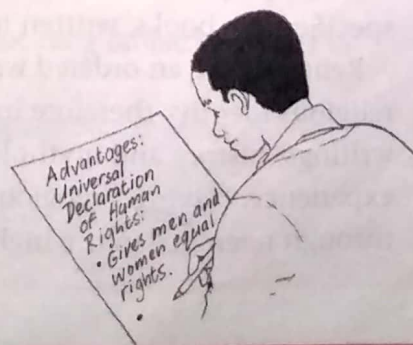 Advantages:
Universal
Declaration
of Human
Rights:
• Gives men and
women equal
rights.
•